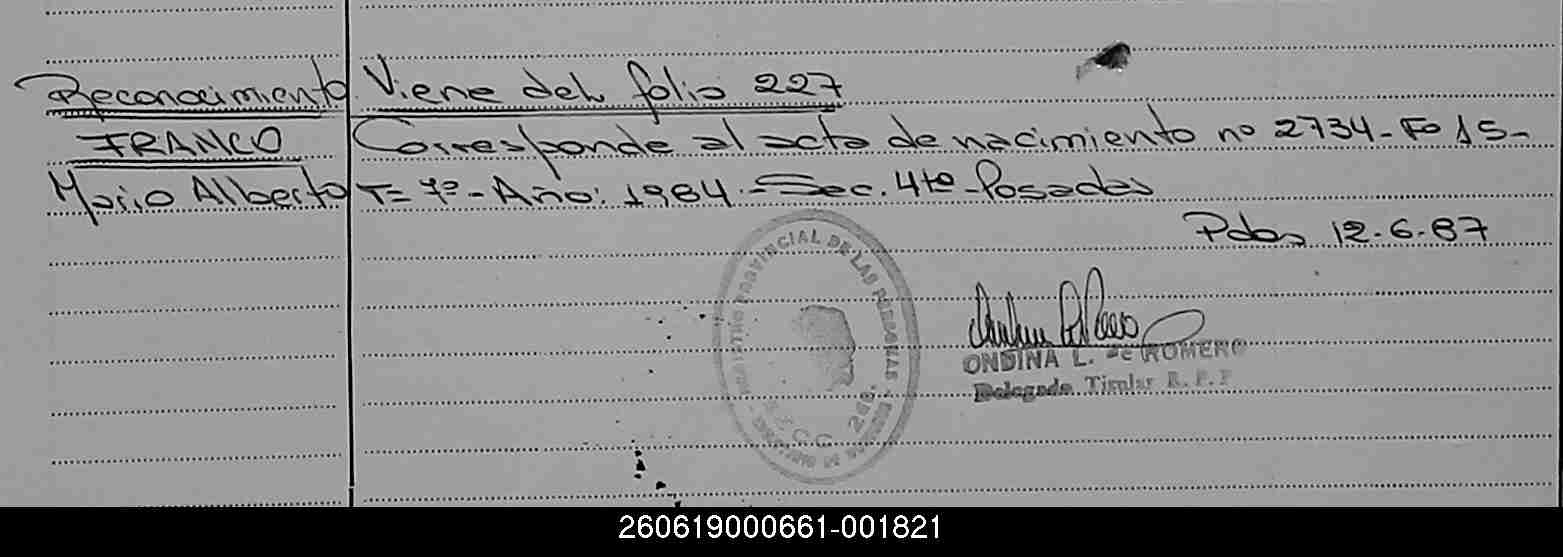 Reconocimiento Viene del folio 227
FRANCO Corresponde al acta de nacimiento nº 2734 - Fº 15 -
Mario Alberto T= 7º - Año: 1984 - Sec. 4tº - Posadas
Pdas 12-6-87
REGISTRO PROVINCIAL DE LAS PERSONAS
SECC. 2da.
ONDINA L. de ROMERO
Delegada Titular R. P. P
260619000661-001821